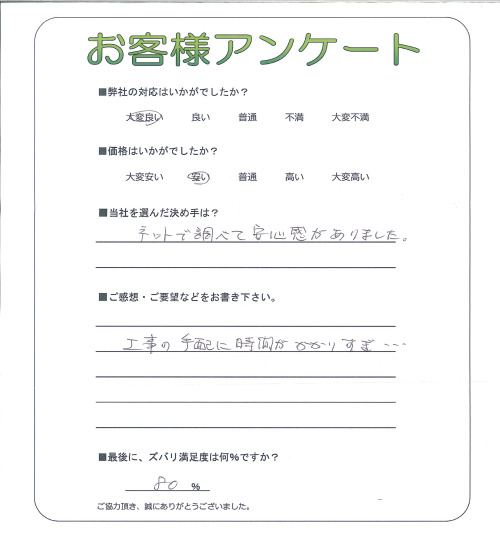 お客様アンケート
■弊社の対応はいかがでしたか？
大変良い 良い 普通 不満 大変不満
■価格はいかがでしたか？
大変安い 安い 普通 高い 大変高い
■当社を選んだ決め手は？
ネットで調べて安心感がありました。
■ご感想・ご要望などをお書き下さい。
工事の手配に時間がかかりすぎ…
■最後に、ズバリ満足度は何%ですか？
80 %
ご協力頂き、誠にありがとうございました。